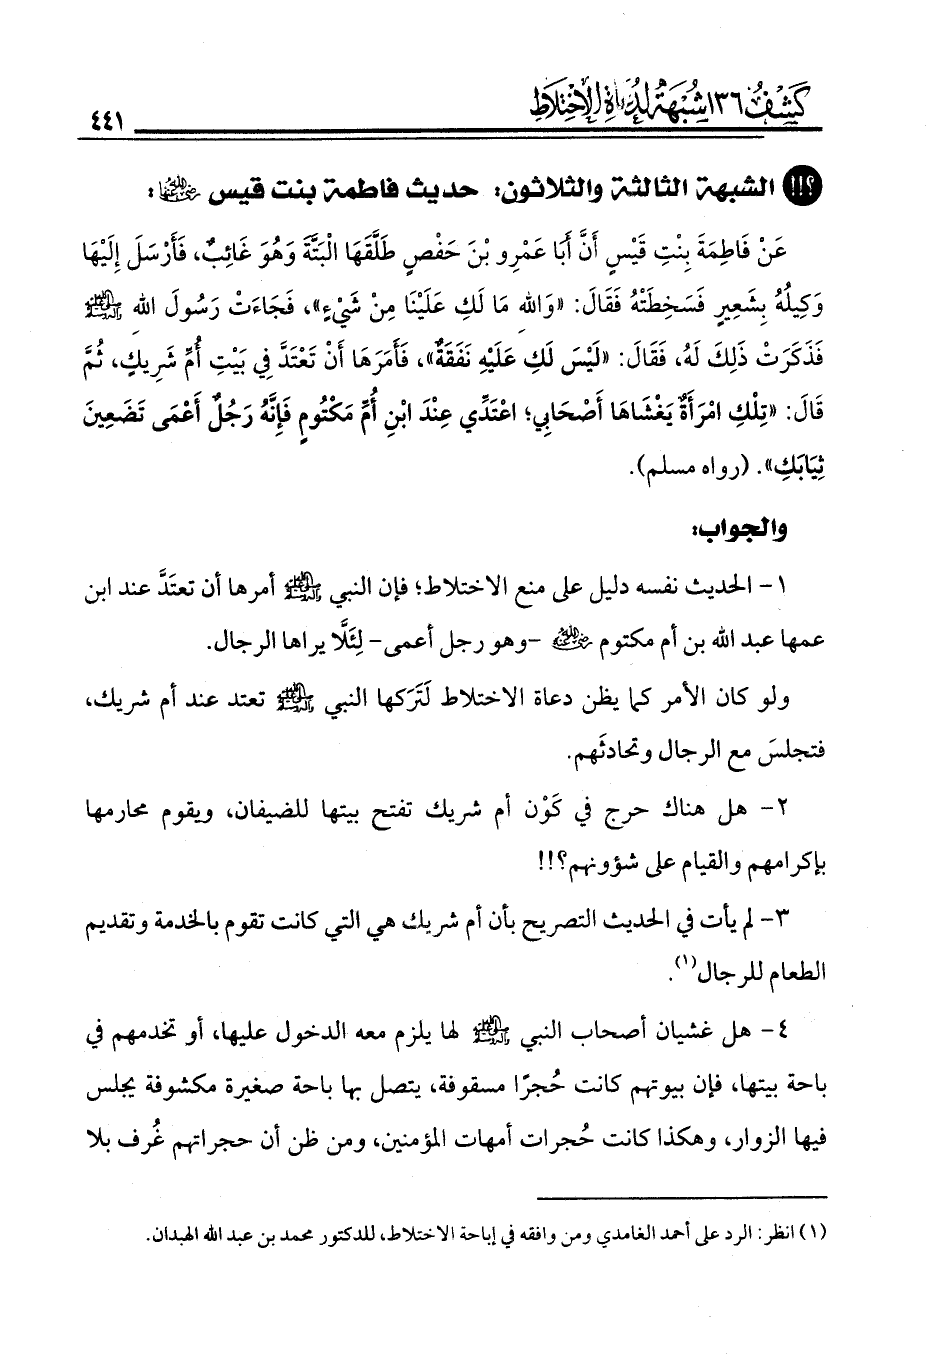 كشف ١٣٦ شبهة لدعاة الاختلاط
٤٤١
الشبهة الثالثة والثلاثون: حديث فاطمة بنت قيس رضي الله عنها:
عَنْ فَاطِمَةَ بِنْتِ قَيْسٍ أَنَّ أَبَا عَمْرِو بْنَ حَفْصٍ طَلَّقَهَا الْبَتَّةَ وَهُوَ غَائِبٌ، فَأَرْسَلَ إِلَيْهَا
وَكِيلُهُ بِشَعِيرٍ فَسَخِطَتْهُ فَقَالَ: «وَاللهِ مَا لَكِ عَلَيْنَا مِنْ شَيْءٍ»، فَجَاءَتْ رَسُولَ اللهِ ﷺ
فَذَكَرَتْ ذَلِكَ لَهُ، فَقَالَ: «لَيْسَ لَكِ عَلَيْهِ نَفَقَةٌ»، فَأَمَرَهَا أَنْ تَعْتَدَّ فِي بَيْتِ أُمِّ شَرِيكٍ، ثُمَّ
قَالَ: «تِلْكِ امْرَأَةٌ يَغْشَاهَا أَصْحَابِي؛ اعْتَدِّي عِنْدَ ابْنِ أُمِّ مَكْتُومٍ فَإِنَّهُ رَجُلٌ أَعْمَى تَضَعِينَ
ثِيَابَكِ». (رواه مسلم).
والجواب:
١- الحديث نفسه دليل على منع الاختلاط؛ فإن النبي ﷺ أمرها أن تعتَدَّ عند ابن
عمها عبد الله بن أم مكتوم رضي الله عنه -وهو رجل أعمى- لِئَلَّا يراها الرجال.
ولو كان الأمر كما يظن دعاة الاختلاط لَتَرَكها النبي ﷺ تعتد عند أم شريك،
فتجلسَ مع الرجال وتحادثَهم.
٢- هل هناك حرج في كَوْن أم شريك تفتح بيتها للضيفان، ويقوم محارمها
بإكرامهم والقيام على شؤونهم؟!!
٣- لم يأت في الحديث التصريح بأن أم شريك هي التي كانت تقوم بالخدمة وتقديم
الطعام للرجال(١).
٤- هل غشيان أصحاب النبي ﷺ لها يلزم معه الدخول عليها، أو تخدمهم في
باحة بيتها، فإن بيوتهم كانت حُجرًا مسقوفة، يتصل بها باحة صغيرة مكشوفة يجلس
فيها الزوار، وهكذا كانت حُجرات أمهات المؤمنين، ومن ظن أن حجراتهم غُرف بلا
(١) انظر: الرد على أحمد الغامدي ومن وافقه في إباحة الاختلاط، للدكتور محمد بن عبد الله الهبدان.